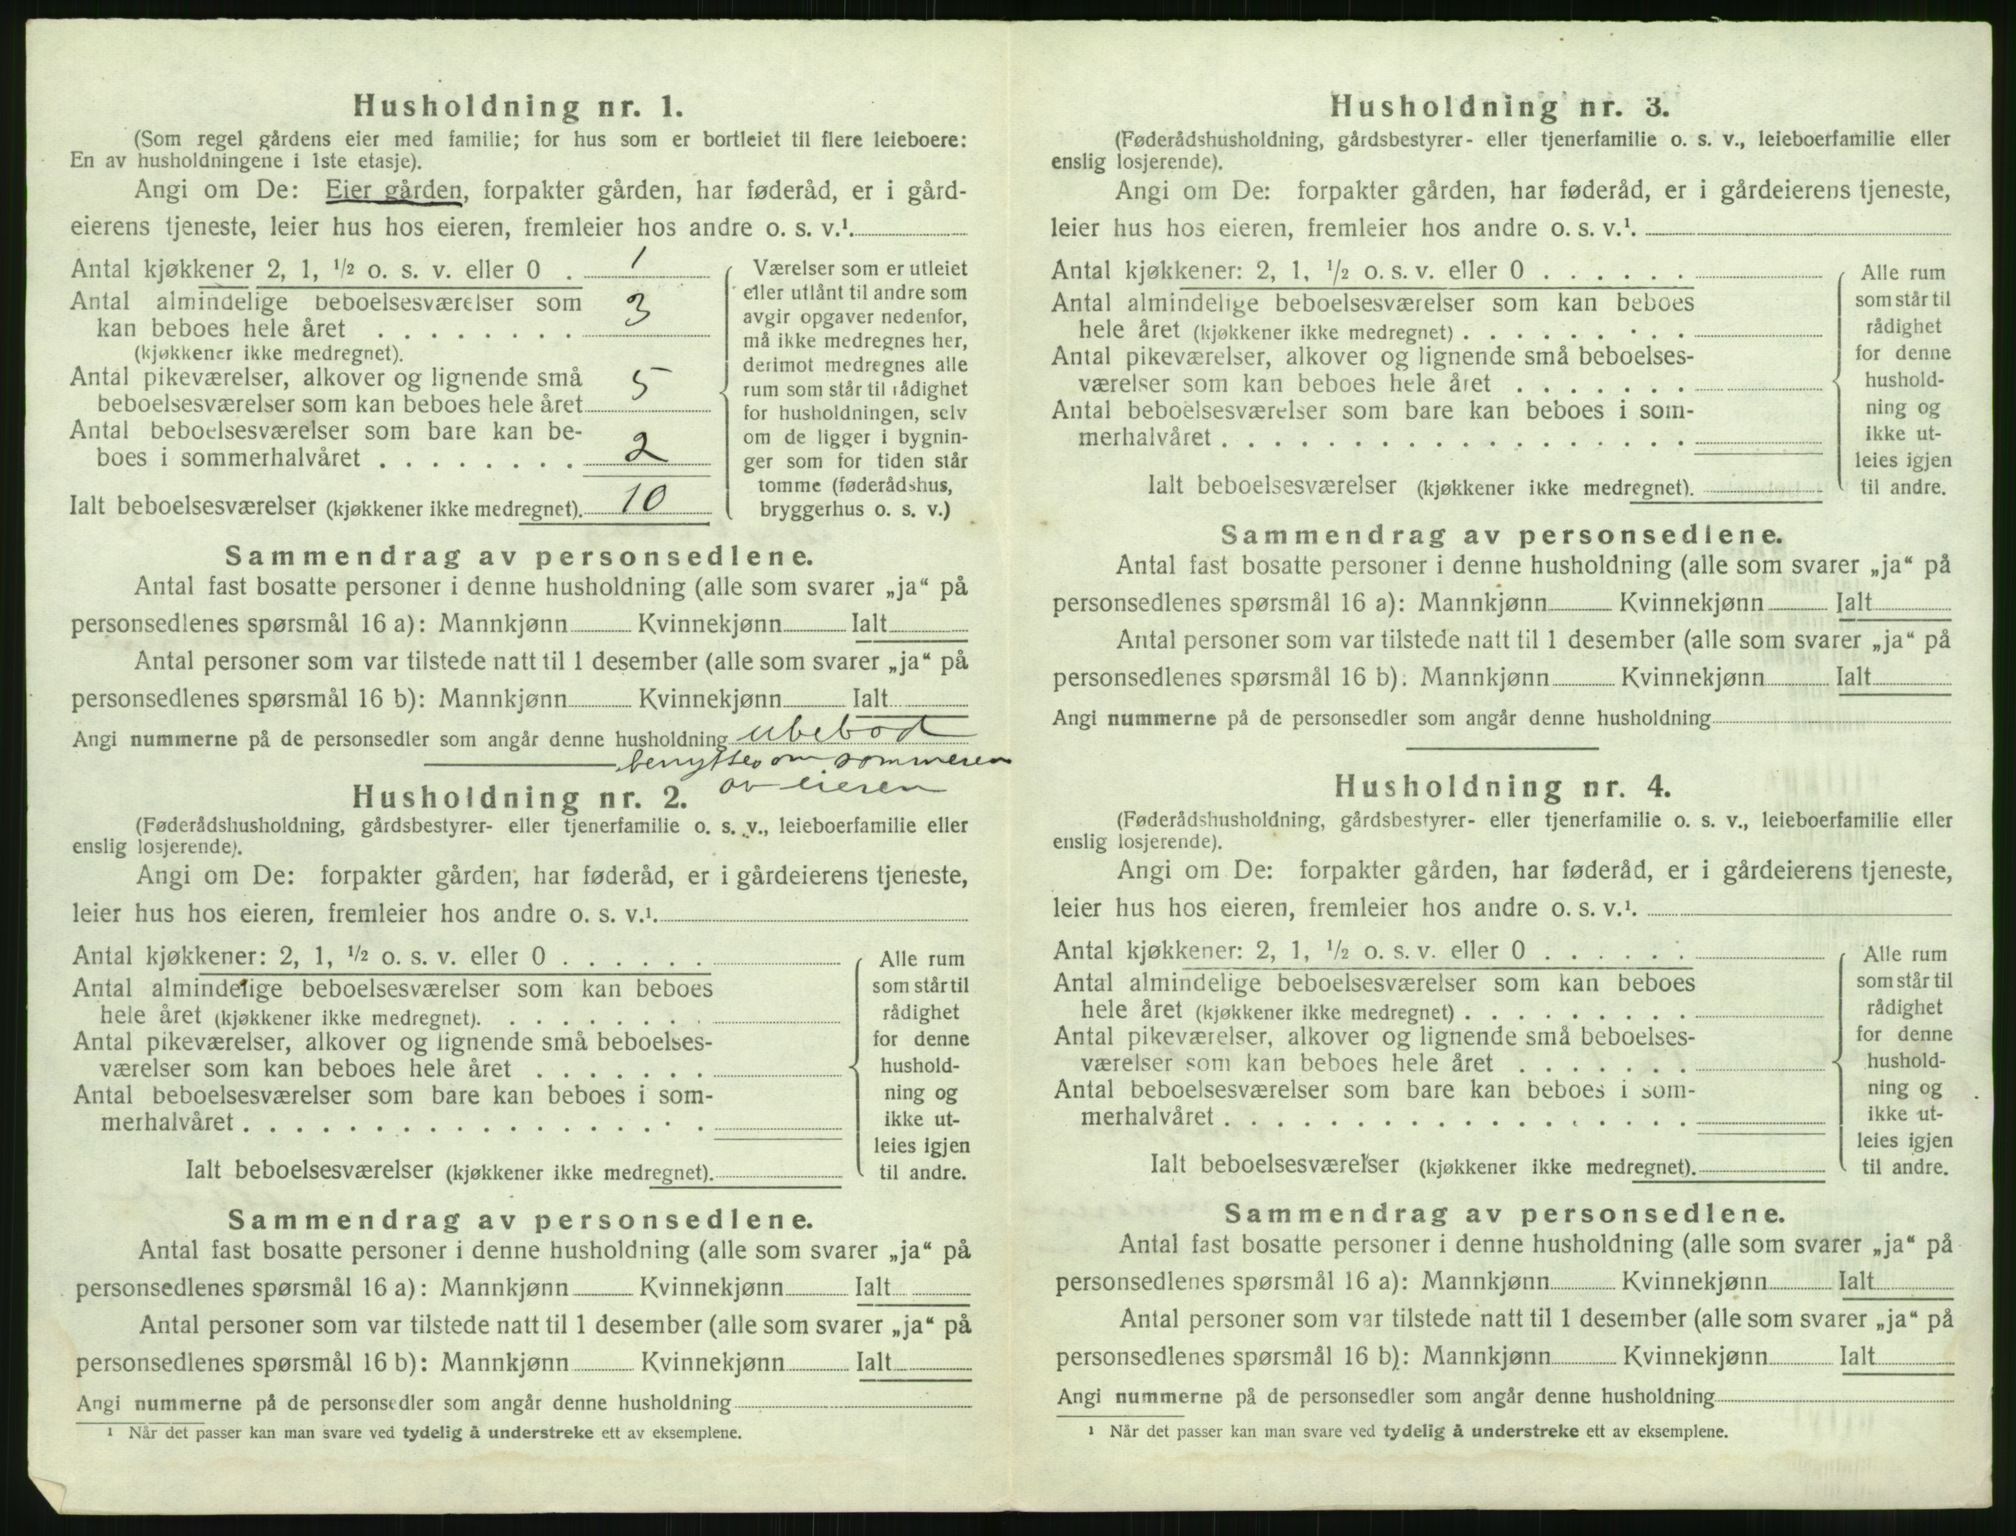 Husholdning nr. 1.
(Som regel gårdens eier med familie; for hus som er bortleiet til flere leieboere:
En av husholdningene i 1ste etasje).
Angi om De: Eier gården, forpakter gården, har føderåd, er i gård-
eierens tjeneste, leier hus hos eieren, fremleier hos andre o. s. v.¹.
Antal kjøkkener 2, 1, ½ o. s. v. eller 0 . 1
Antal almindelige beboelsesværelser som
kan beboes hele året . . . . . . . 3
(kjøkkener ikke medregnet).
Antal pikeværelser, alkover og lignende små
beboelsesværelser som kan beboes hele året 5
Antal beboelsesværelser som bare kan be-
boes i sommerhalvåret . . . . . . . . 2
Ialt beboelsesværelser (kjøkkener ikke medregnet). 10
Værelser som er utleiet
eller utlånt til andre som
avgir opgaver nedenfor,
må ikke medregnes her,
derimot medregnes alle
rum som står til rådighet
for husholdningen, selv
om de ligger i bygnin-
ger som for tiden står
tomme (føderådshus,
bryggerhus o. s. v.)
Sammendrag av personsedlene.
Antal fast bosatte personer i denne husholdning (alle som svarer „ja“ på
personsedlenes spørsmål 16 a): Mannkjønn Kvinnekjønn Ialt
Antal personer som var tilstede natt til 1 desember (alle som svarer „ja“ på
personsedlenes spørsmål 16 b): Mannkjønn Kvinnekjønn Ialt
Angi nummerne på de personsedler som angår denne husholdning ubebod
benyttes om sommeren
av eieren
Husholdning nr. 2.
(Føderådshusholdning, gårdsbestyrer- eller tjenerfamilie o. s. v., leieboerfamilie eller
enslig losjerende).
Angi om De: forpakter gården, har føderåd, er i gårdeierens tjeneste,
leier hus hos eieren, fremleier hos andre o. s. v.¹.
Antal kjøkkener: 2, 1, ½ o. s. v. eller 0 . . . . . .
Antal almindelige beboelsesværelser som kan beboes
hele året (kjøkkener ikke medregnet). . . . . . . . .
Antal pikeværelser, alkover og lignende små beboelses-
værelser som kan beboes hele året . . . . . . .
Antal beboelsesværelser som bare kan beboes i som-
merhalvåret . . . . . . . . . . . . . . . . . .
Ialt beboelsesværelser (kjøkkener ikke medregnet).
Alle rum
som står til
rådighet
for denne
hushold-
ning og
ikke ut-
leies igjen
til andre.
Sammendrag av personsedlene.
Antal fast bosatte personer i denne husholdning (alle som svarer „ja“ på
personsedlenes spørsmål 16 a): Mannkjønn Kvinnekjønn Ialt
Antal personer som var tilstede natt til 1 desember (alle som svarer „ja“ på
personsedlenes spørsmål 16 b): Mannkjønn Kvinnekjønn Ialt
Angi nummerne på de personsedler som angår denne husholdning
¹ Når det passer kan man svare ved tydelig å understreke ett av eksemplene.
Husholdning nr. 3.
(Føderådshusholdning, gårdsbestyrer- eller tjenerfamilie o. s. v., leieboerfamilie eller
enslig losjerende).
Angi om De: forpakter gården, har føderåd, er i gårdeierens tjeneste,
leier hus hos eieren, fremleier hos andre o. s. v.¹.
Antal kjøkkener: 2, 1, ½ o. s. v. eller 0 . . . . . .
Antal almindelige beboelsesværelser som kan beboes
hele året (kjøkkener ikke medregnet) . . . . . . . . .
Antal pikeværelser, alkover og lignende små beboelses-
værelser som kan beboes hele året . . . . . . .
Antal beboelsesværelser som bare kan beboes i som-
merhalvåret . . . . . . . . . . . . . . . . . .
Ialt beboelsesværelser (kjøkkener ikke medregnet).
Alle rum
som står til
rådighet
for denne
hushold-
ning og
ikke ut-
leies igjen
til andre.
Sammendrag av personsedlene.
Antal fast bosatte personer i denne husholdning (alle som svarer „ja“ på
personsedlenes spørsmål 16 a): Mannkjønn Kvinnekjønn Ialt
Antal personer som var tilstede natt til 1 desember (alle som svarer „ja“ på
personsedlenes spørsmål 16 b). Mannkjønn Kvinnekjønn Ialt
Angi nummerne på de personsedler som angår denne husholdning
Husholdning nr. 4.
(Føderådshusholdning, gårdsbestyrer- eller tjenerfamilie o. s. v., leieboerfamilie eller
enslig losjerende).
Angi om De: forpakter gården, har føderåd, er i gårdeierens tjeneste,
leier hus hos eieren, fremleier hos andre o. s. v.¹.
Antal kjøkkener: 2, 1, ½ o. s. v. eller 0 . . . . . .
Antal almindelige beboelsesværelser som kan beboes
hele året (kjøkkener ikke medregnet) . . . . . . . . .
Antal pikeværelser, alkover og lignende små beboelses-
værelser som kan beboes hele året . . . . . . .
Antal beboelsesværelser som bare kan beboes i som-
merhalvåret . . . . . . . . . . . . . . . . . .
Ialt beboelsesværelser (kjøkkener ikke medregnet).
Alle rum
som står til
rådighet
for denne
hushold-
ning og
ikke ut-
leies igjen
til andre.
Sammendrag av personsedlene.
Antal fast bosatte personer i denne husholdning (alle som svarer „ja“ på
personsedlenes spørsmål 16 a): Mannkjønn Kvinnekjønn Ialt
Antal personer som var tilstede natt til 1 desember (alle som svarer „ja“ på
personsedlenes spørsmål 16 b): Mannkjønn Kvinnekjønn Ialt
Angi nummerne på de personsedler som angår denne husholdning
¹ Når det passer kan man svare ved tydelig å understreke ett av eksemplene.